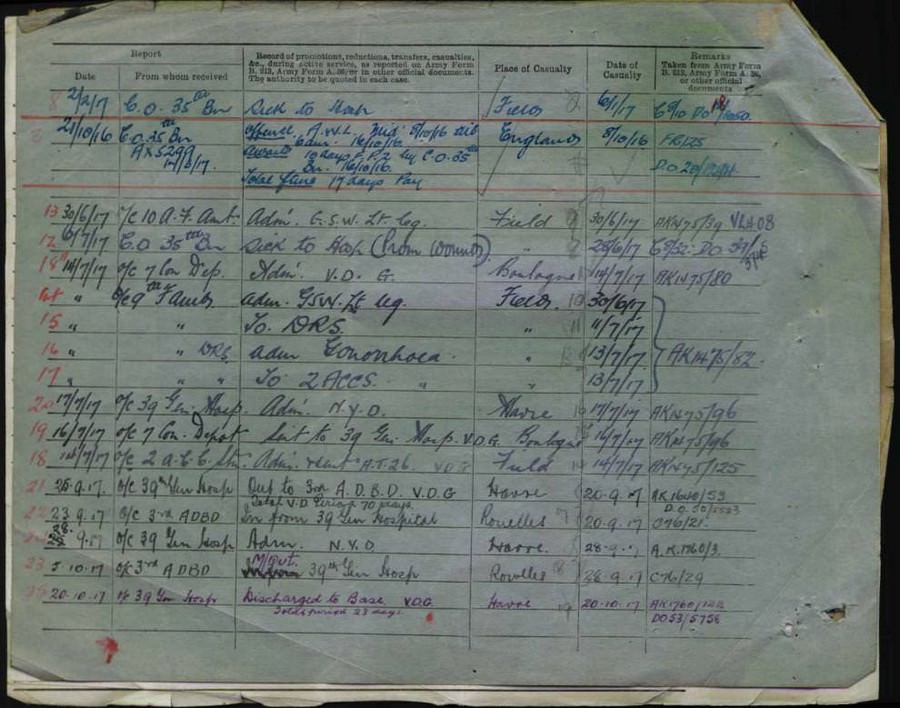 Report
Record of promotions, reductions, transfers, casualties,
&c., during active service, as reported on Army Form
B. 213, Army Form A. 36, or in other official documents.
The authority to be quoted in each case.
Place of Casualty
Date of
Casualty
Remarks
Taken from Army Form
B. 213, Army Form A. 36,
or other official
documents
Date From whom received
8 2/2/17 C.O. 35th Bn Sick to Hosp Field 6/1/17
21/10/16 C.O. 35 Bn A.W.L. England 5/10/16 FR125
AX5299 10 days F.P.2 by C.O. 35th
Bn. 16/10/16. D.O. 20/
Total fine 17 days Pay
13 30/6/17 O/C 10 A.F. Amb. Adm. G.S.W. Lt leg. Field 30/6/17 AK1475/39
12 6/7/17 C.O 35th Bn Sick to Hosp (from wounds) " 28/6/17
18 14/7/17 O/C 7 Con Dep. Adm. V.D.G. Boulogne 14/7/17 AK1475/80
" O/C 9th F Amb Adm. GSW Lt leg. Field 30/6/17
15 " " To DRS. " 11/7/17
16 " " DRS. adm Gonorrhoea. " 13/7/17 AK1475/82
17 " " " To 2ACCS. " " 13/7/17
20 17/7/17 O/C 39 Gen. Hosp. Adm. N.Y.D. Havre 17/7/17 AK1475/96
19 16/7/17 O/C 7 Con. Depot Sent to 39 Gen Hosp. V.D.G. Boulogne 16/7/17 AK1475/96
18 14/7/17 O/C 2 A.C.C. Stn. Adm. & sent A.T.26 V.D.G. Field 14/7/17 AK1475/125
21 O/C 39th Gen Hosp Out to 3rd A.D.B.D. V.D.G Havre 20-9-17 AK1640/53
Total V.D. Period 70 days.
23.9.17 O/C 3rd ADBD In from 39 Gen Hospital Rouelles 20-9-17 C76/21.
28.9.17 O/C 39 Gen Hosp Adm. N.Y.D Havre. 28-9-17 A.K.1760/3.
23 5-10-17 O/C 3rd ADBD M/Out. 39th Gen Hosp Rouelles 28-9-17 C76/29
20-10-17 O/C 39 Gen Hosp Discharged to Base. V.D.G. Havre 20-10-17
Total period 23 days. DO53/5758